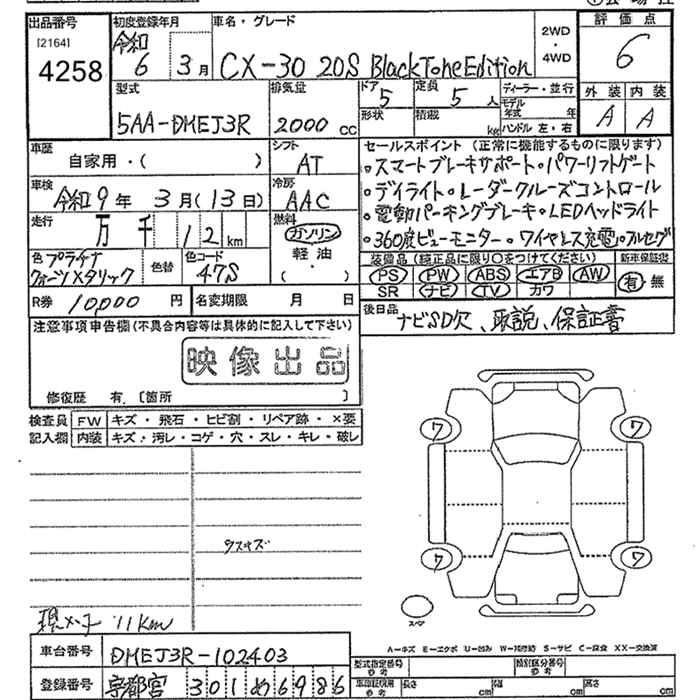 出品番号 初度登録年月 車名・グレード 2WD・4WD 評価点
[2164] 4258 令和 6 3月 CX-30 20S BlackToneEdition 6
型式 排気量 ドア 定員 ディーラー・並行 外装 内装
5AA-DMEJ3R 2000 cc 5 5人 モデル年式 年 A A
形状 積載 kg ハンドル 左・右
車歴 自家用・( ) シフト AT
セールスポイント (正常に機能するものに限ります)
・スマートブレーキサポート・パワーリフトゲート
車検 令和9年 3月(13日) 冷房 AAC
・デイライト・レーダークルーズコントロール
・電動パーキングブレーキ・LEDヘッドライト
走行 万 千 12 km 燃料 ガソリン 軽油 ・( )
・360度ビューモニター・ワイヤレス充電・フルセグ
色 プラチナクォーツメタリック 色替 色コード 47S
装備品 (純正品に限り○をつけてください) 新車保証書
PS PW ABS エアB AW 有・無
SR ナビ TV カワ
R券 10,000 円 名変期限 月 日
後日品 ナビSD欠、取説、保証書
注意事項申告欄(不具合内容等は具体的に記入して下さい)
映像出品
修復歴 有.〔箇所 〕
検査員 FW キズ・飛石・ヒビ割・リペア跡・×要
記入欄 内装 キズ・汚レ・コゲ・穴・スレ・キレ・破レ
ワ ワ
ワ ワ
スペア
現メーター 11km
A-キズ E-エクボ U-凹み W-補修跡 S-サビ C-腐食 XX-交換済
車台番号 DMEJ3R-102403
型式指定番号 参考 類別区分番号 参考
登録番号 宇都宮 301 め 6986
車庫証明用 参考 長さ cm 幅 cm 高さ cm